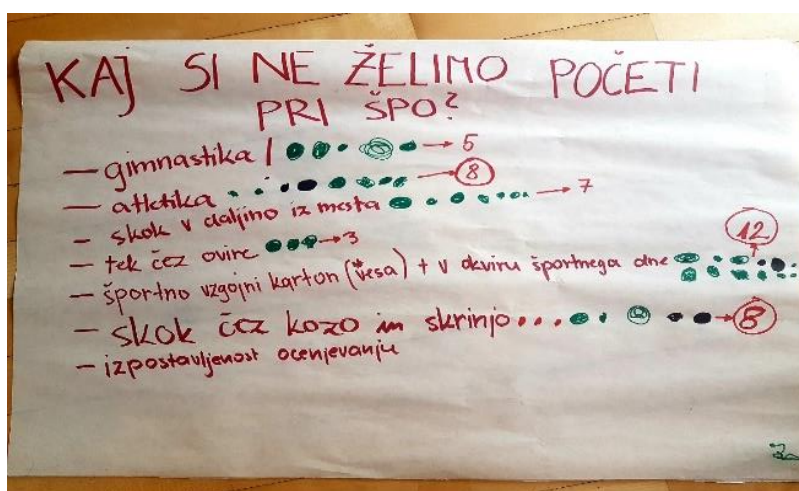 KAJ SI NE ŽELIMO POČETI
PRI ŠPO?
— gimnastika / → 5
— atletika → 8
— skok v daljino iz mesta → 7
— tek čez ovire → 3
— športno vzgojni karton (vesa) + v okviru športnega dne → 12
— skok čez kozo in skrinjo → 8
— izpostavljenost ocenjevanju